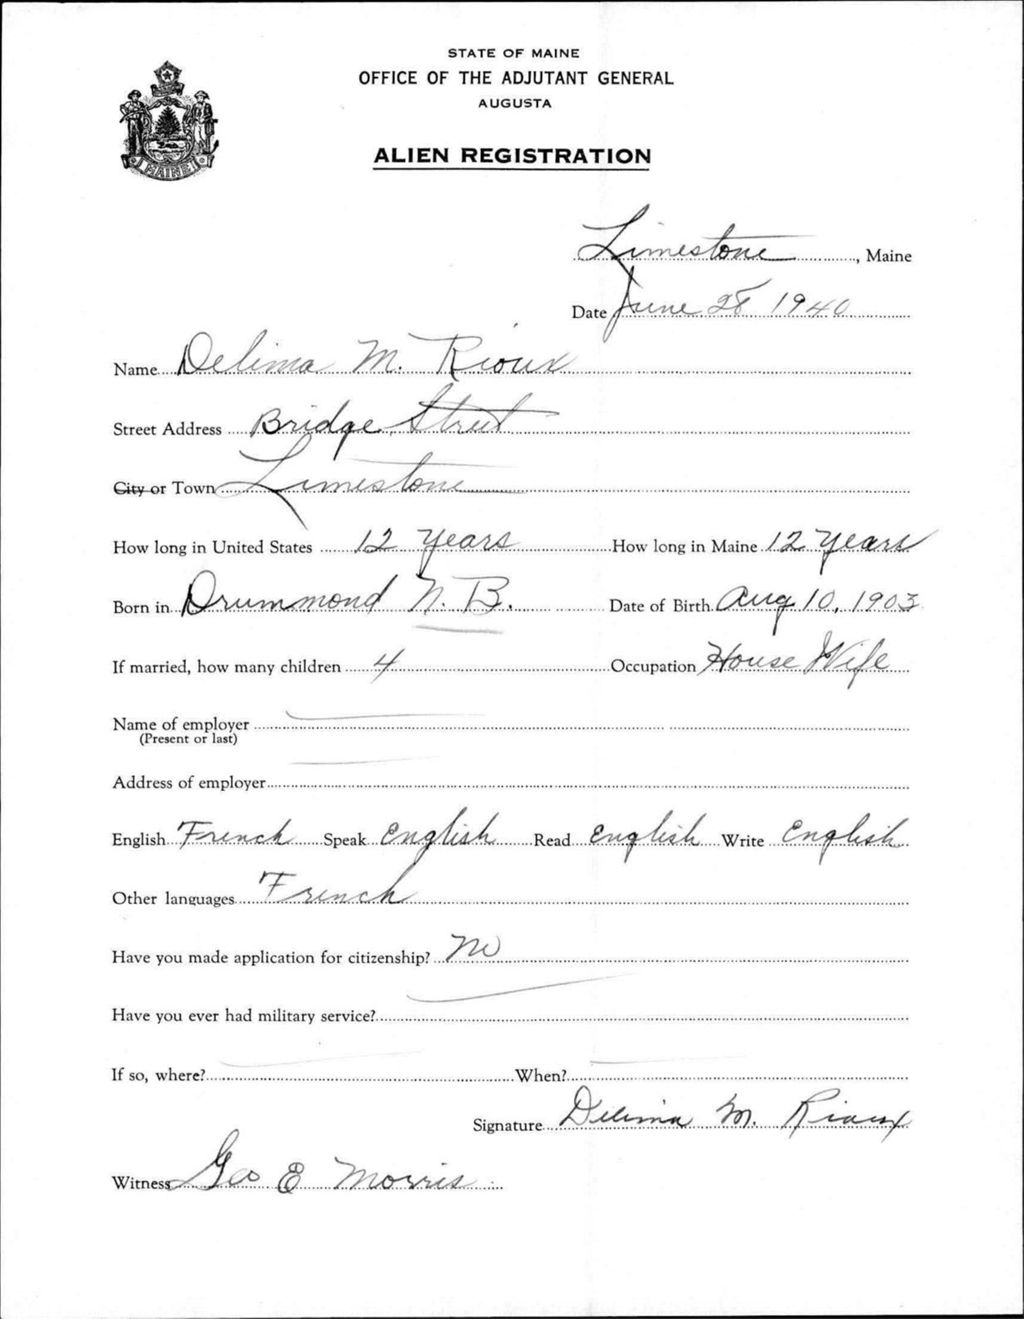 STATE OF MAINE
OFFICE OF THE ADJUTANT GENERAL
AUGUSTA
ALIEN REGISTRATION
MAINE
Limestone, Maine
Date June 28 1940
Name Delima M. Rioux
Street Address Bridge Street
City or Town Limestone
How long in United States 12 Years How long in Maine 12 Years
Born in Drummond N. B. Date of Birth Aug 10, 1903
If married, how many children 4 Occupation House Wife
Name of employer
(Present or last)
Address of employer
English French Speak English Read English Write English
Other languages French
Have you made application for citizenship? No
Have you ever had military service?
If so, where? When?
Signature Delima M. Rioux
Witness Geo E Morris